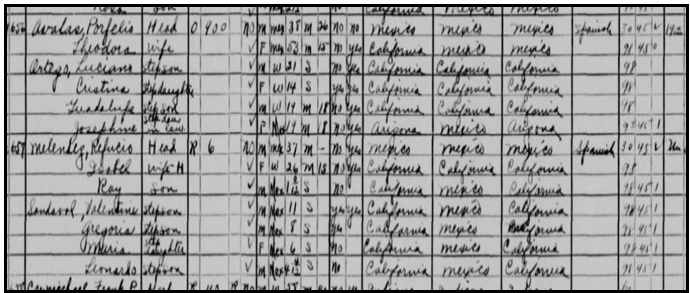 Son California California
656 Avalas, Porfelio Head O 900 NO M Mex 38 M 26 no no Mexico Mexico Mexico Spanish 30 45 V
Theodora Wife V F Mex 53 M 15 no yes Mexico Mexico Mexico 98 45 0
Ortego, Luciano Stepson V M W 21 S no yes California California California 98
Cristina Stepdaughter V F W 14 S yes yes California California California 98
Guadalupe Stepson V M W 19 M 18 no yes California California California 98
Josephine Stepdau in law V F Mex 19 M 18 no yes Arizona Mexico Arizona 45 1
657 Melendez, Refucio Head R 6 NO M Mex 37 M no yes Mexico Mexico Mexico Spanish 30 45 V
Isabel Wife-H V F W 26 M 15 no yes California California California 98
Ray Son V M Mex S no California Mexico California 98 45 1
Sandaval, Valentine Stepson V M Mex 11 S yes yes California Mexico California 98 45 1
Gregorio Stepson V M Mex 8 S yes California Mexico California 98 45 1
Maria Step Daughter V F Mex 6 S no California Mexico California 98 45 1
Leonardo Stepson V M Mex S no California Mexico California 98 45 1
Frank P. Head R